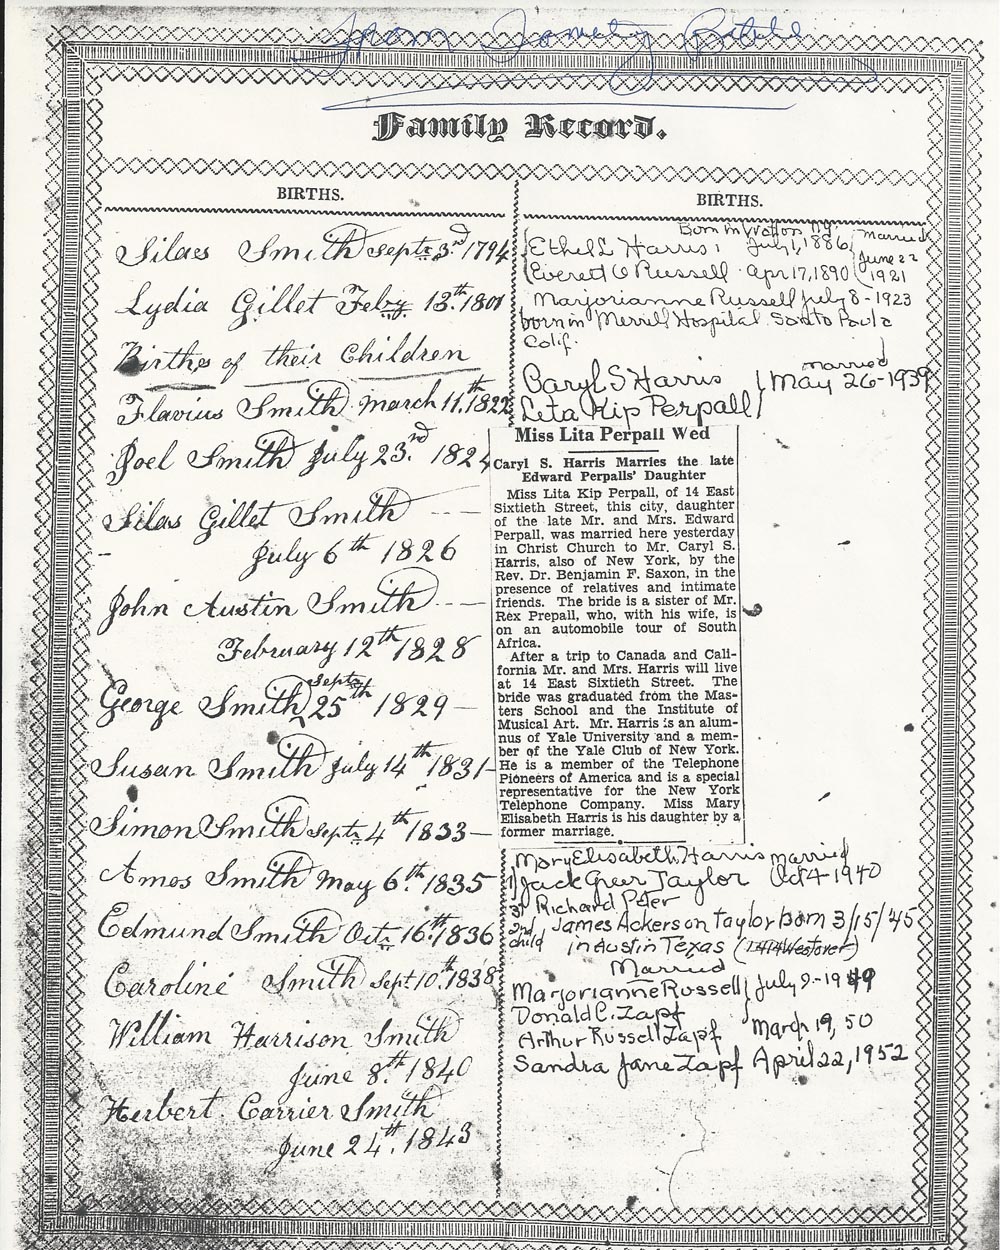 From Family Bible
Family Record.
BIRTHS.
Silaes Smith Septr. 3rd 1794
Lydia Gillet Feby 13th. 1801
Birthes of their Children
Flavius Smith. March 11.th 1822
Joel Smith July 23.rd 1824
Silas Gillet Smith
July 6th 1826
John Austin Smith
February 12th 1828
George Smith Septr 25th 1829
Susan Smith July 14th 1831
Simon Smith Septr. 4th 1833
Amos Smith May 6th. 1835
Edmund Smith Octr. 16th. 1836
Caroline Smith Sept 10th. 1838
William Harrison Smith
June 8th. 1840
Herbert Carrier Smith
June 24th. 1843
BIRTHS.
Born in N.Y. married
Ethel L Harris, July 1, 1886 June 22
Everett O Russell. Apr 17, 1890 1921
Marjorianne Russell July 8-1923
born in Merrill Hospital. Santa Paula
Calif.
married
Caryl S Harris May 26-1939
Leta Kip Perpall
Miss Lita Perpall Wed
Caryl S. Harris Marries the late
Edward Perpalls' Daughter
Miss Lita Kip Perpall, of 14 East
Sixtieth Street, this city, daughter
of the late Mr. and Mrs. Edward
Perpall, was married here yesterday
in Christ Church to Mr. Caryl S.
Harris, also of New York, by the
Rev. Dr. Benjamin F. Saxon, in the
presence of relatives and intimate
friends. The bride is a sister of Mr.
Rex Prepall, who, with his wife, is
on an automobile tour of South
Africa.
After a trip to Canada and Cali-
fornia Mr. and Mrs. Harris will live
at 14 East Sixtieth Street. The
bride was graduated from the Mas-
ters School and the Institute of
Musical Art. Mr. Harris is an alum-
nus of Yale University and a mem-
ber of the Yale Club of New York.
He is a member of the Telephone
Pioneers of America and is a special
representative for the New York
Telephone Company. Miss Mary
Elisabeth Harris is his daughter by a
former marriage.
Mary Elisabeth Harris married
Jack Greer Taylor Oct 4-1940
Richard Peter
2nd child James Ackerson Taylor born 3/15/45
in Austin Texas (1414 Westover)
Married
Marjorianne Russell July 9-1949
Donald C. Zapf
Arthur Russell Zapf March 19, 50
Sandra Jane Zapf April 22, 1952